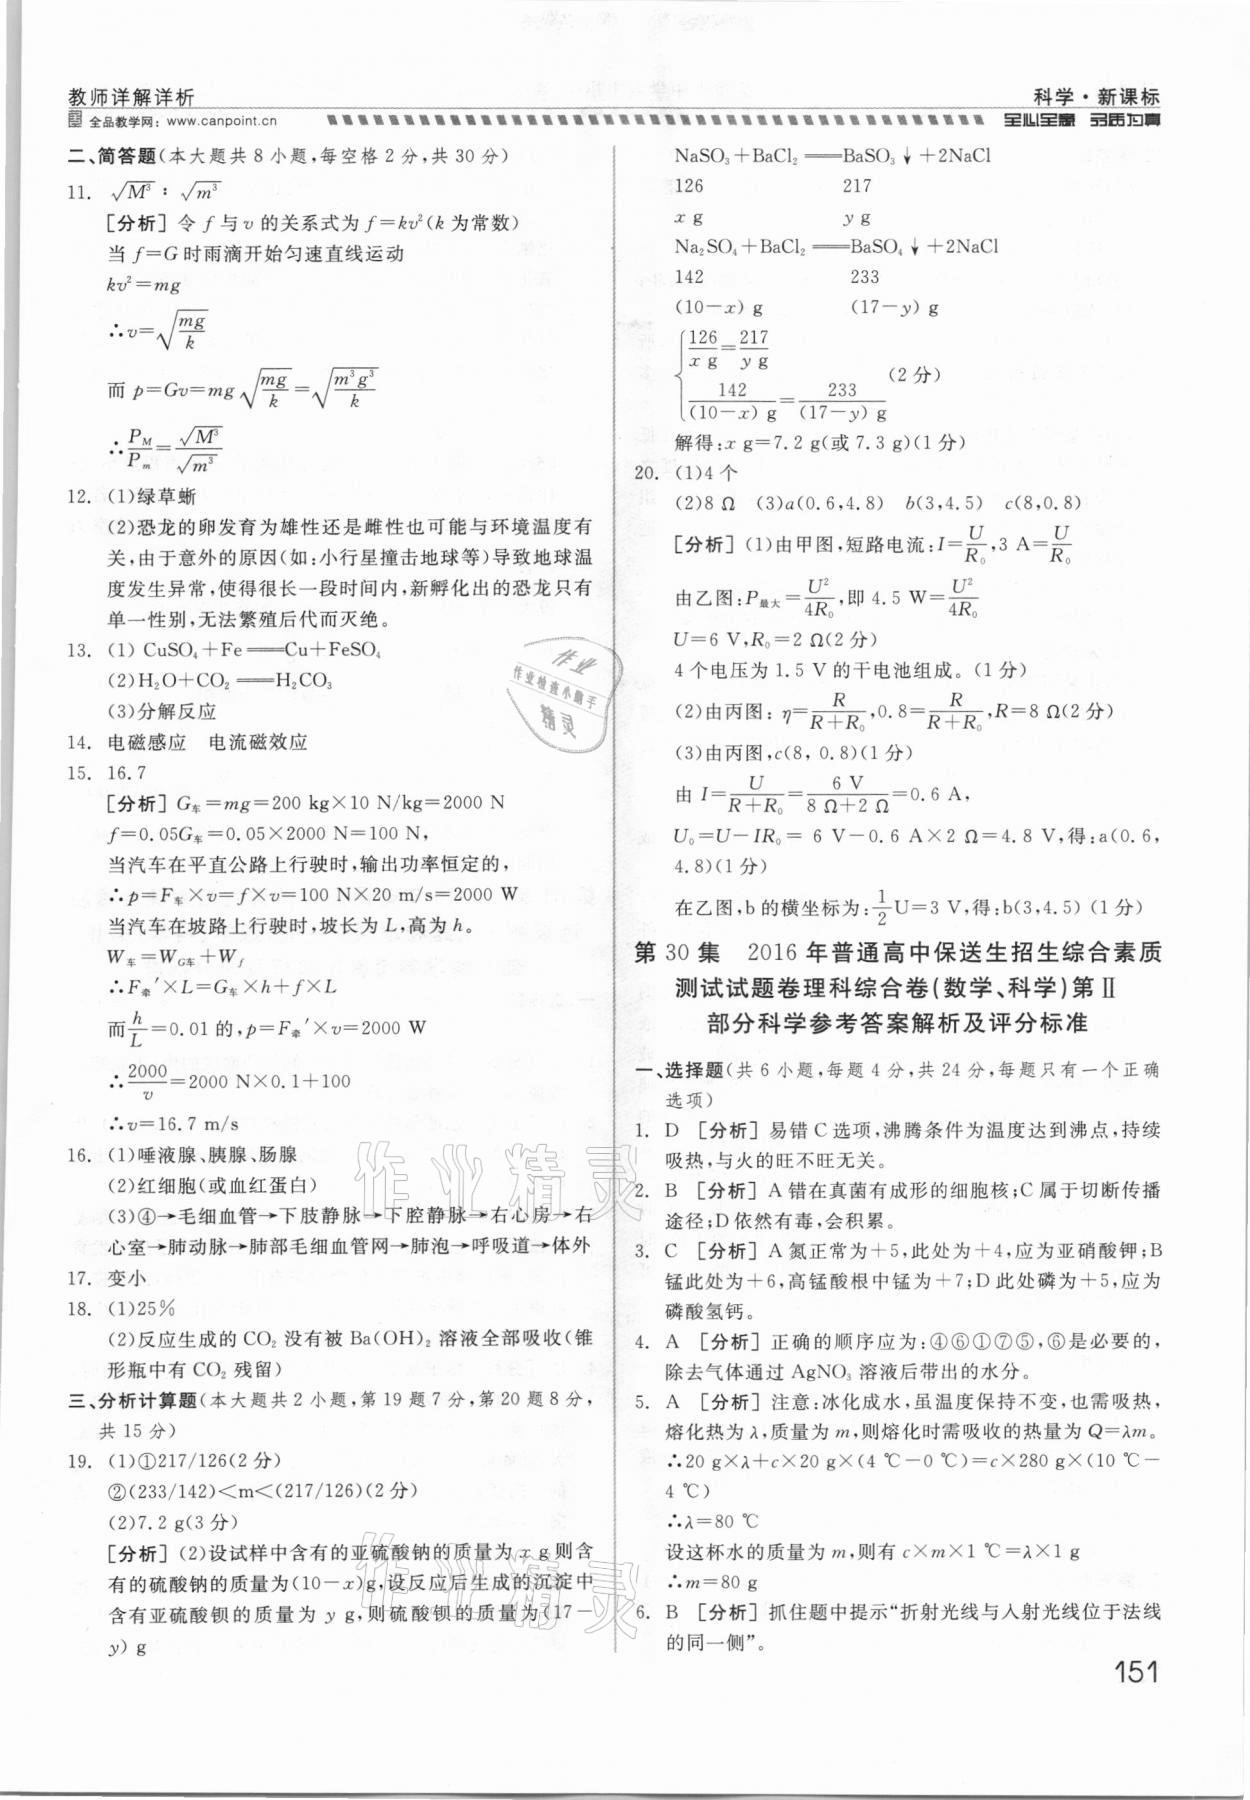 教师详解详析
全品教学网：www.canpoint.cn
科学·新课标
全心全意 品质为真
二、简答题(本大题共8小题,每空格2分,共30分)
11. √M³ : √m³
[分析]令f与v的关系式为f=kv²(k为常数)
当f=G时雨滴开始匀速直线运动
kv²=mg
∴v=√(mg/k)
而p=Gv=mg√(mg/k)=√(m³g³/k)
∴P_M/P_m=√M³/√m³
12. (1)绿草蜥
(2)恐龙的卵发育为雄性还是雌性也可能与环境温度有
关,由于意外的原因(如:小行星撞击地球等)导致地球温
度发生异常,使得很长一段时间内,新孵化出的恐龙只有
单一性别,无法繁殖后代而灭绝。
13. (1) CuSO₄+Fe══Cu+FeSO₄
(2)H₂O+CO₂══H₂CO₃
(3)分解反应
14. 电磁感应 电流磁效应
15. 16.7
[分析]G车=mg=200 kg×10 N/kg=2000 N
f=0.05G车=0.05×2000 N=100 N,
当汽车在平直公路上行驶时,输出功率恒定的,
∴p=F车×v=f×v=100 N×20 m/s=2000 W
当汽车在坡路上行驶时,坡长为L,高为h。
W车=W_G车+W_f
∴F牵′×L=G车×h+f×L
而h/L=0.01的,p=F牵′×v=2000 W
∴2000/v=2000 N×0.1+100
∴v=16.7 m/s
16. (1)唾液腺、胰腺、肠腺
(2)红细胞(或血红蛋白)
(3)④→毛细血管→下肢静脉→下腔静脉→右心房→右
心室→肺动脉→肺部毛细血管网→肺泡→呼吸道→体外
17. 变小
18. (1)25%
(2)反应生成的CO₂没有被Ba(OH)₂溶液全部吸收(锥
形瓶中有CO₂残留)
三、分析计算题(本大题共2小题,第19题7分,第20题8分,
共15分)
19. (1)①217/126(2分)
②(233/142)<m<(217/126)(2分)
(2)7.2 g(3分)
[分析](2)设试样中含有的亚硫酸钠的质量为x g则含
有的硫酸钠的质量为(10-x)g,设反应后生成的沉淀中
含有亚硫酸钡的质量为y g,则硫酸钡的质量为(17-
y) g
NaSO₃+BaCl₂══BaSO₃↓+2NaCl
126 217
x g y g
Na₂SO₄+BaCl₂══BaSO₄↓+2NaCl
142 233
(10-x) g (17-y) g
{126/(x g)=217/(y g)
142/((10-x) g)=233/((17-y) g) (2分)
解得:x g=7.2 g(或7.3 g)(1分)
20. (1)4个
(2)8 Ω (3)a(0.6,4.8) b(3,4.5) c(8,0.8)
[分析](1)由甲图,短路电流:I=U/R₀,3 A=U/R₀
由乙图:P最大=U²/4R₀,即4.5 W=U²/4R₀
U=6 V,R₀=2 Ω(2分)
4个电压为1.5 V的干电池组成。(1分)
(2)由丙图:η=R/(R+R₀),0.8=R/(R+R₀),R=8 Ω(2分)
(3)由丙图,c(8,0.8)(1分)
由I=U/(R+R₀)=6 V/(8 Ω+2 Ω)=0.6 A,
U₀=U-IR₀= 6 V-0.6 A×2 Ω=4.8 V,得:a(0.6,
4.8)(1分)
在乙图,b的横坐标为:1/2U=3 V,得:b(3,4.5) (1分)
第30集 2016年普通高中保送生招生综合素质
测试试题卷理科综合卷(数学、科学)第Ⅱ
部分科学参考答案解析及评分标准
一、选择题(共6小题,每题4分,共24分,每题只有一个正确
选项)
1. D [分析]易错C选项,沸腾条件为温度达到沸点,持续
吸热,与火的旺不旺无关。
2. B [分析]A错在真菌有成形的细胞核;C属于切断传播
途径;D依然有毒,会积累。
3. C [分析]A氮正常为+5,此处为+4,应为亚硝酸钾;B
锰此处为+6,高锰酸根中锰为+7;D此处磷为+5,应为
磷酸氢钙。
4. A [分析]正确的顺序应为:④⑥①⑦⑤,⑥是必要的,
除去气体通过AgNO₃溶液后带出的水分。
5. A [分析]注意:冰化成水,虽温度保持不变,也需吸热,
熔化热为λ,质量为m,则熔化时需吸收的热量为Q=λm。
∴20 g×λ+c×20 g×(4 ℃-0 ℃)=c×280 g×(10 ℃-
4 ℃)
∴λ=80 ℃
设这杯水的质量为m,则有c×m×1 ℃=λ×1 g
∴m=80 g
6. B [分析]抓住题中提示“折射光线与入射光线位于法线
的同一侧”。
151
作业
作业检查小助手
精灵
作业精灵
作业精灵